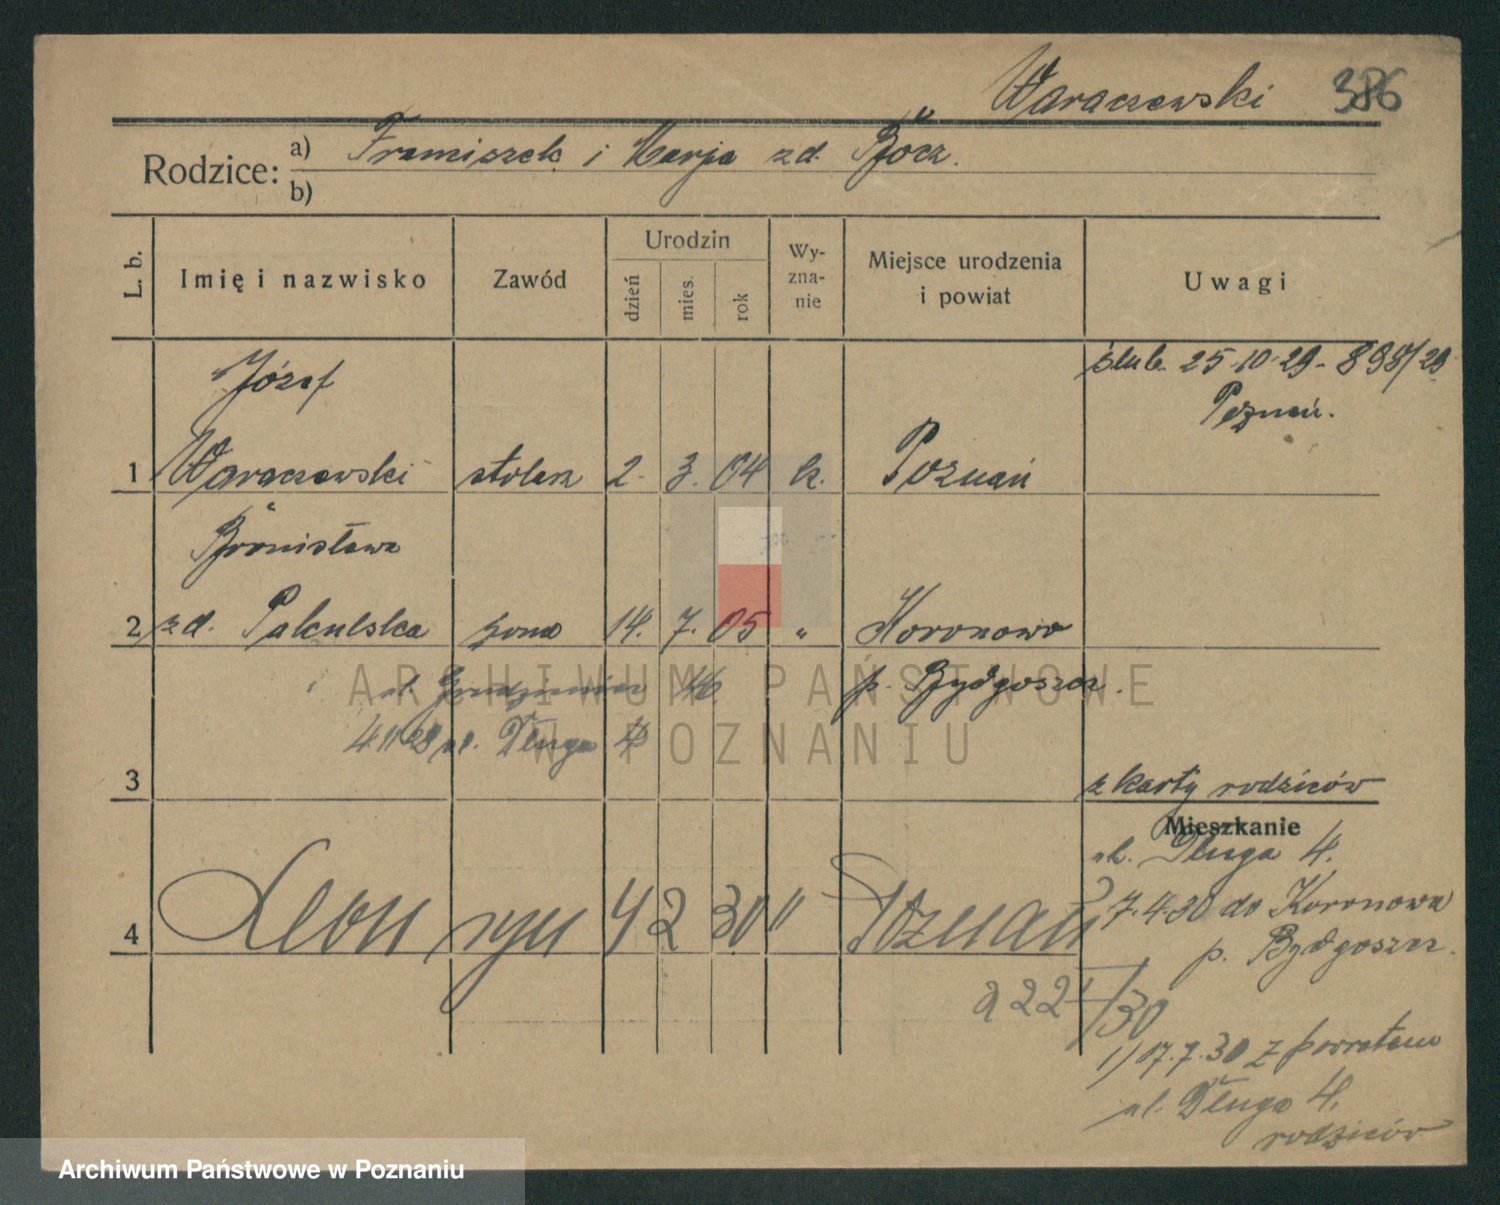 Waraczewski 386
Rodzice: a) Franciszek i Marja zd. Bocz.
b)
L. b. Imię i nazwisko Zawód Urodzin dzień mies. rok Wy-zna-nie Miejsce urodzenia i powiat Uwagi
Józef
ślub. 25-10-29- 898/29
Poznań.
1 Waraczewski stolarz 2. 3. 04 k. Poznań
Bronisława
2 zd. Pakulska żona 14. 7. 05 " Koronowo
ul. 16 p. Bydgoszcz.
4 11 28 ul. Długa 4
3
z karty rodziców
Mieszkanie
ul. Długa 4.
4 Leon syn 4 2 30 " Poznań
7.4.30 do Koronowa
p. Bydgoszcz.
a 221/30
1) 17.7.30 z powrotem
ul. Długa 4.
rodziców
ARCHIWUM PAŃSTWOWE
W POZNANIU
Archiwum Państwowe w Poznaniu